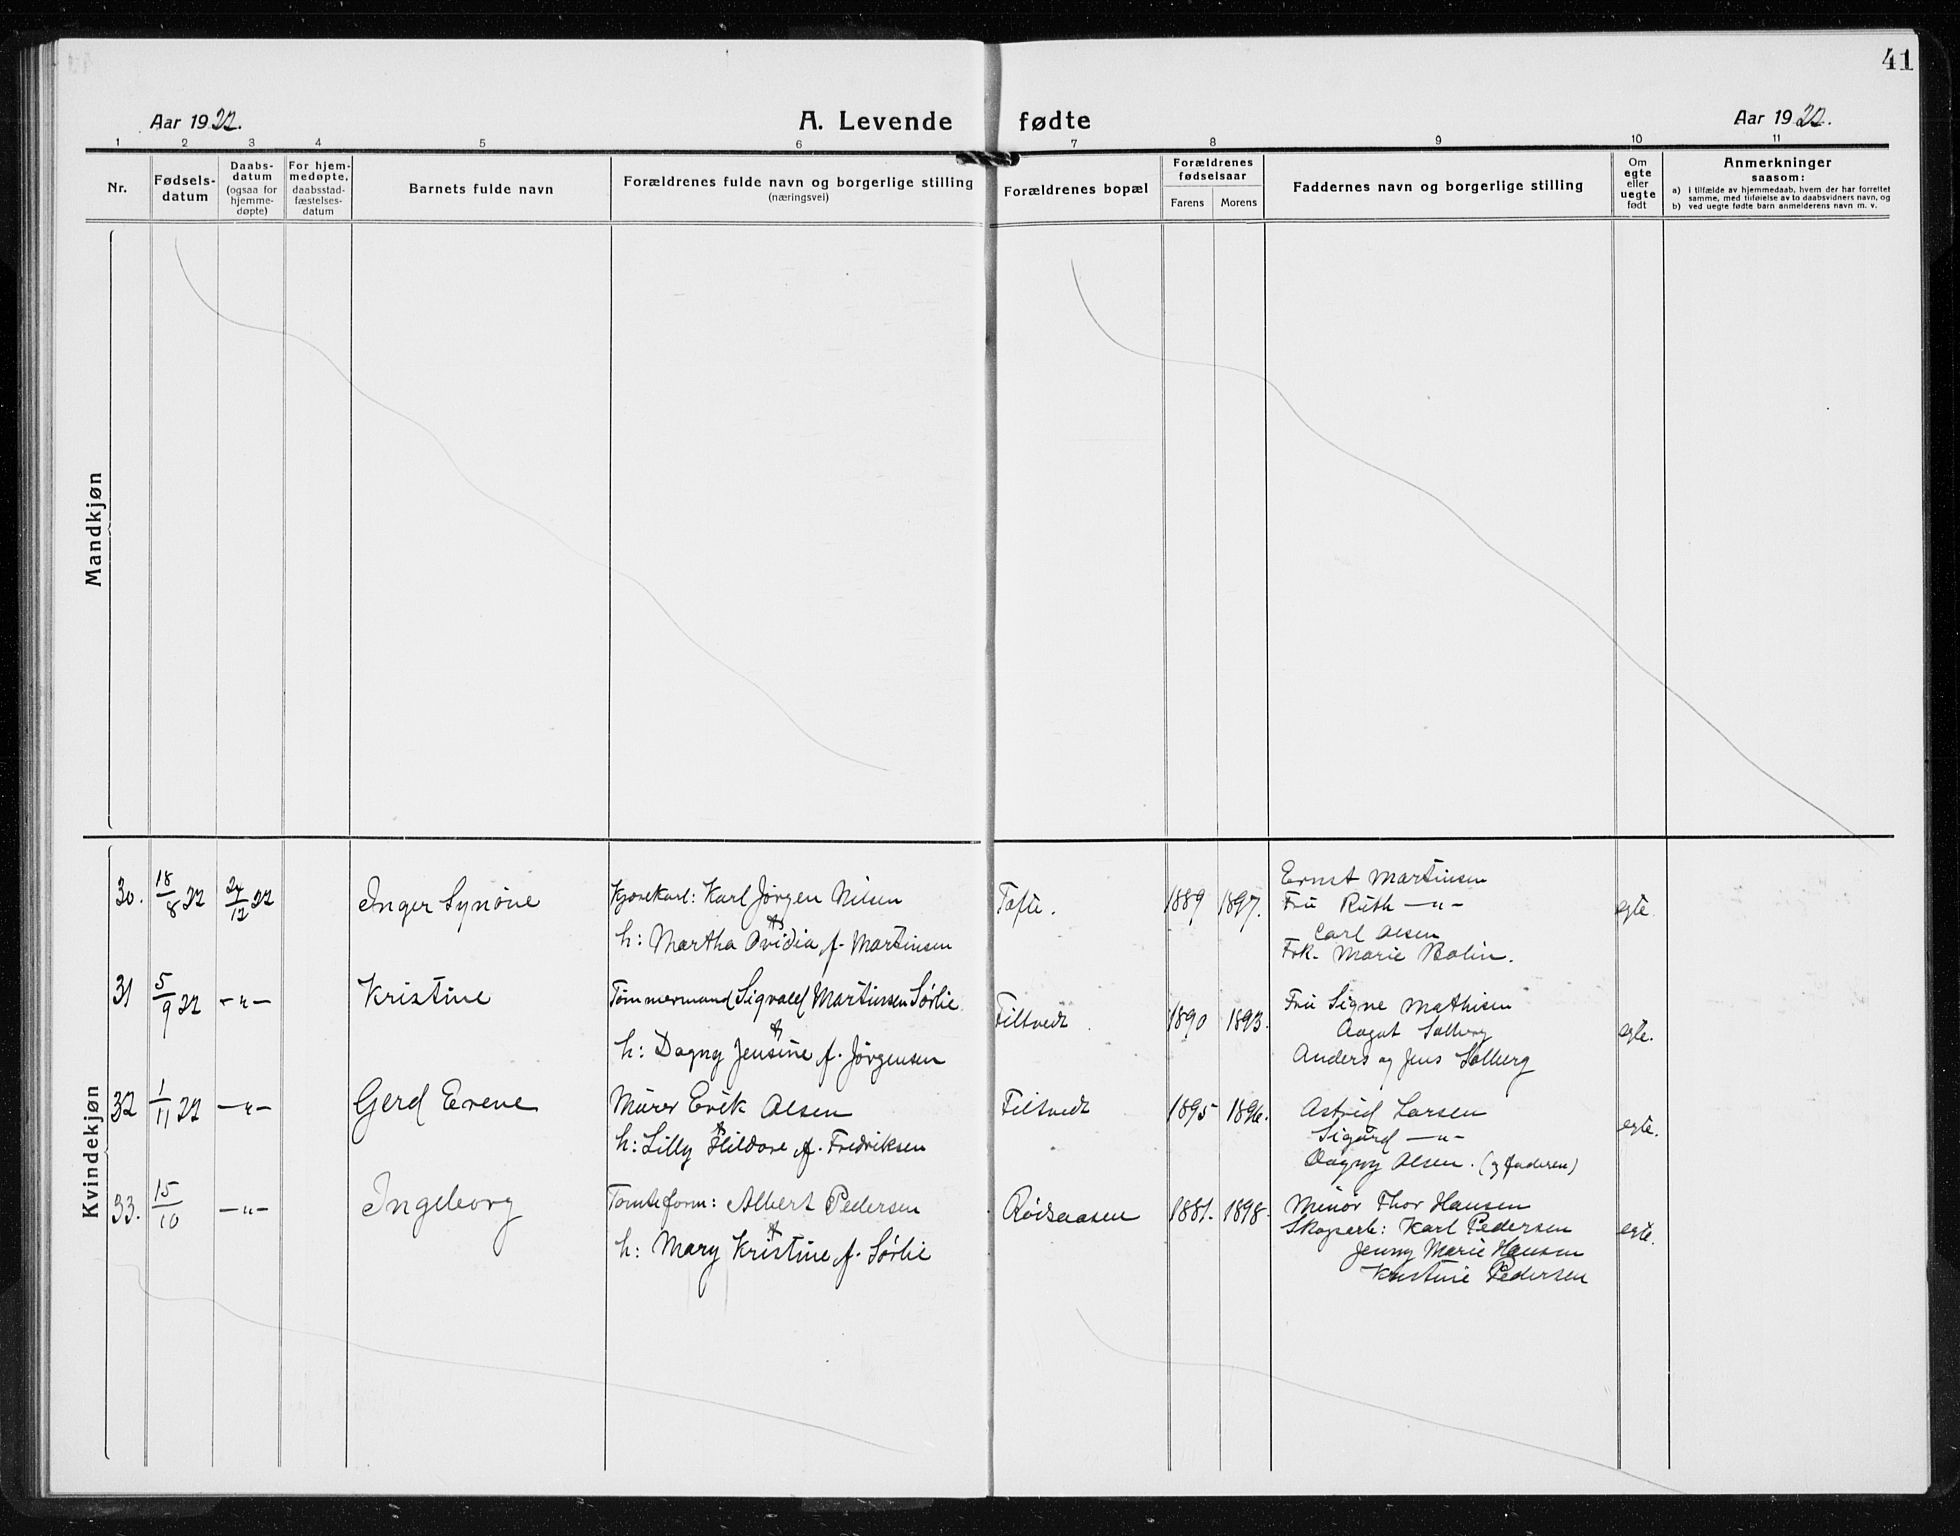 41
Aar 1922.
A. Levende fødte
Aar 1922.
1 2 3 4 5 6 7 8 9 10 11
Nr.
Fødsels-
datum
Daabs-
datum
(ogsaa for
hjemme-
døpte)
For hjem-
medøpte,
daabsstad-
fæstelses-
datum
Barnets fulde navn
Forældrenes fulde navn og borgerlige stilling
(næringsvei)
Forældrenes bopæl
Forældrenes
fødselsaar
Farens Morens
Faddernes navn og borgerlige stilling
Om
egte
eller
uegte
født
Anmerkninger
saasom:
a) i tilfælde av hjemmedaab, hvem der har forrettet
samme, med tilføielse av to daabsvidners navn, og
b) ved uegte fødte barn anmelderens navn m. v.
Mandkjøn
Kvindekjøn
30. 18/8 22 24/12 22 Inger Synöve
Kjørekarl: Karl Jørgen Nilsen
h: Martha Ovidia f. Martinsen
Tofte. 1889 1897.
Ernst Martinsen
Fru Ruth —"—
Carl Olsen
Frk. Marie Bolin.
egte.
31 5/9 22 —"— Kristine
Tømmermand Sigvald Martinsen Sørlie
h: Dagny Jensine f. Jørgensen
Filtvedt 1890 1893.
Fru Signe Mathisen
Aagot Solberg
Anders og Jens Solberg
egte.
32 1/11 22 —"— Gerd Evene
Murer Erik Olsen
h: Lilly Hildore f. Fredriksen
Filtvedt 1895 1896.
Astrid Larsen
Sigurd —"—
Dagny Olsen. (og faderen)
egte.
33. 15/10 —"— Ingeborg
Tomteform: Albert Pedersen
h: Mary Kristine f. Sørlie
Rødsaasen 1881. 1898.
Minør Thor Hansen
Skogsarb: Karl Pedersen
Jenny Marie Hansen
Kristine Pedersen
egte.